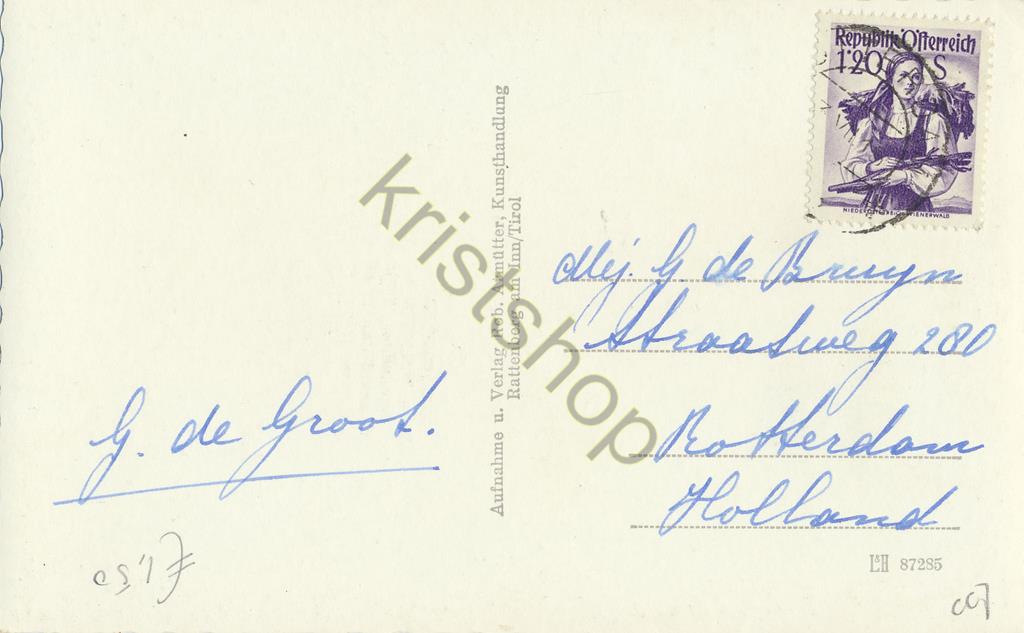 Republik Österreich
1·20 S
NIEDERÖSTERREICH, WIENERWALD
Aufnahme u. Verlag Rob. Armütter, Kunsthandlung
Rattenberg am Inn/Tirol
kristshop
Mej. G de Bruyn
Straatweg 280
Rotterdam
Holland
G. de Groot.
L&H 87285